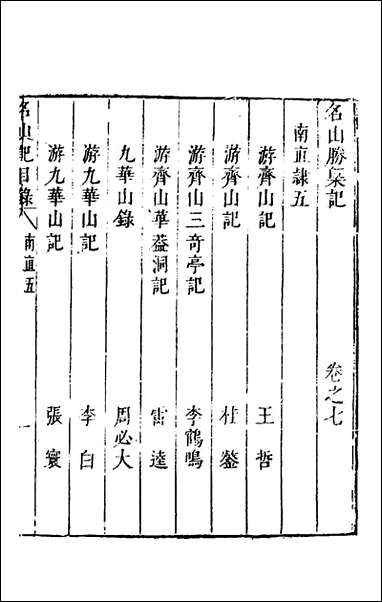 名山勝槩記 卷之七
南直隷五
游齊山記 王哲
游齊山記 杜鏊
游齊山三奇亭記 李鶴鳴
游齊山華葢洞記 雷逵
九華山錄 周必大
游九華山記 李白
游九華山記 張寰
名山記目錄 南直五 一